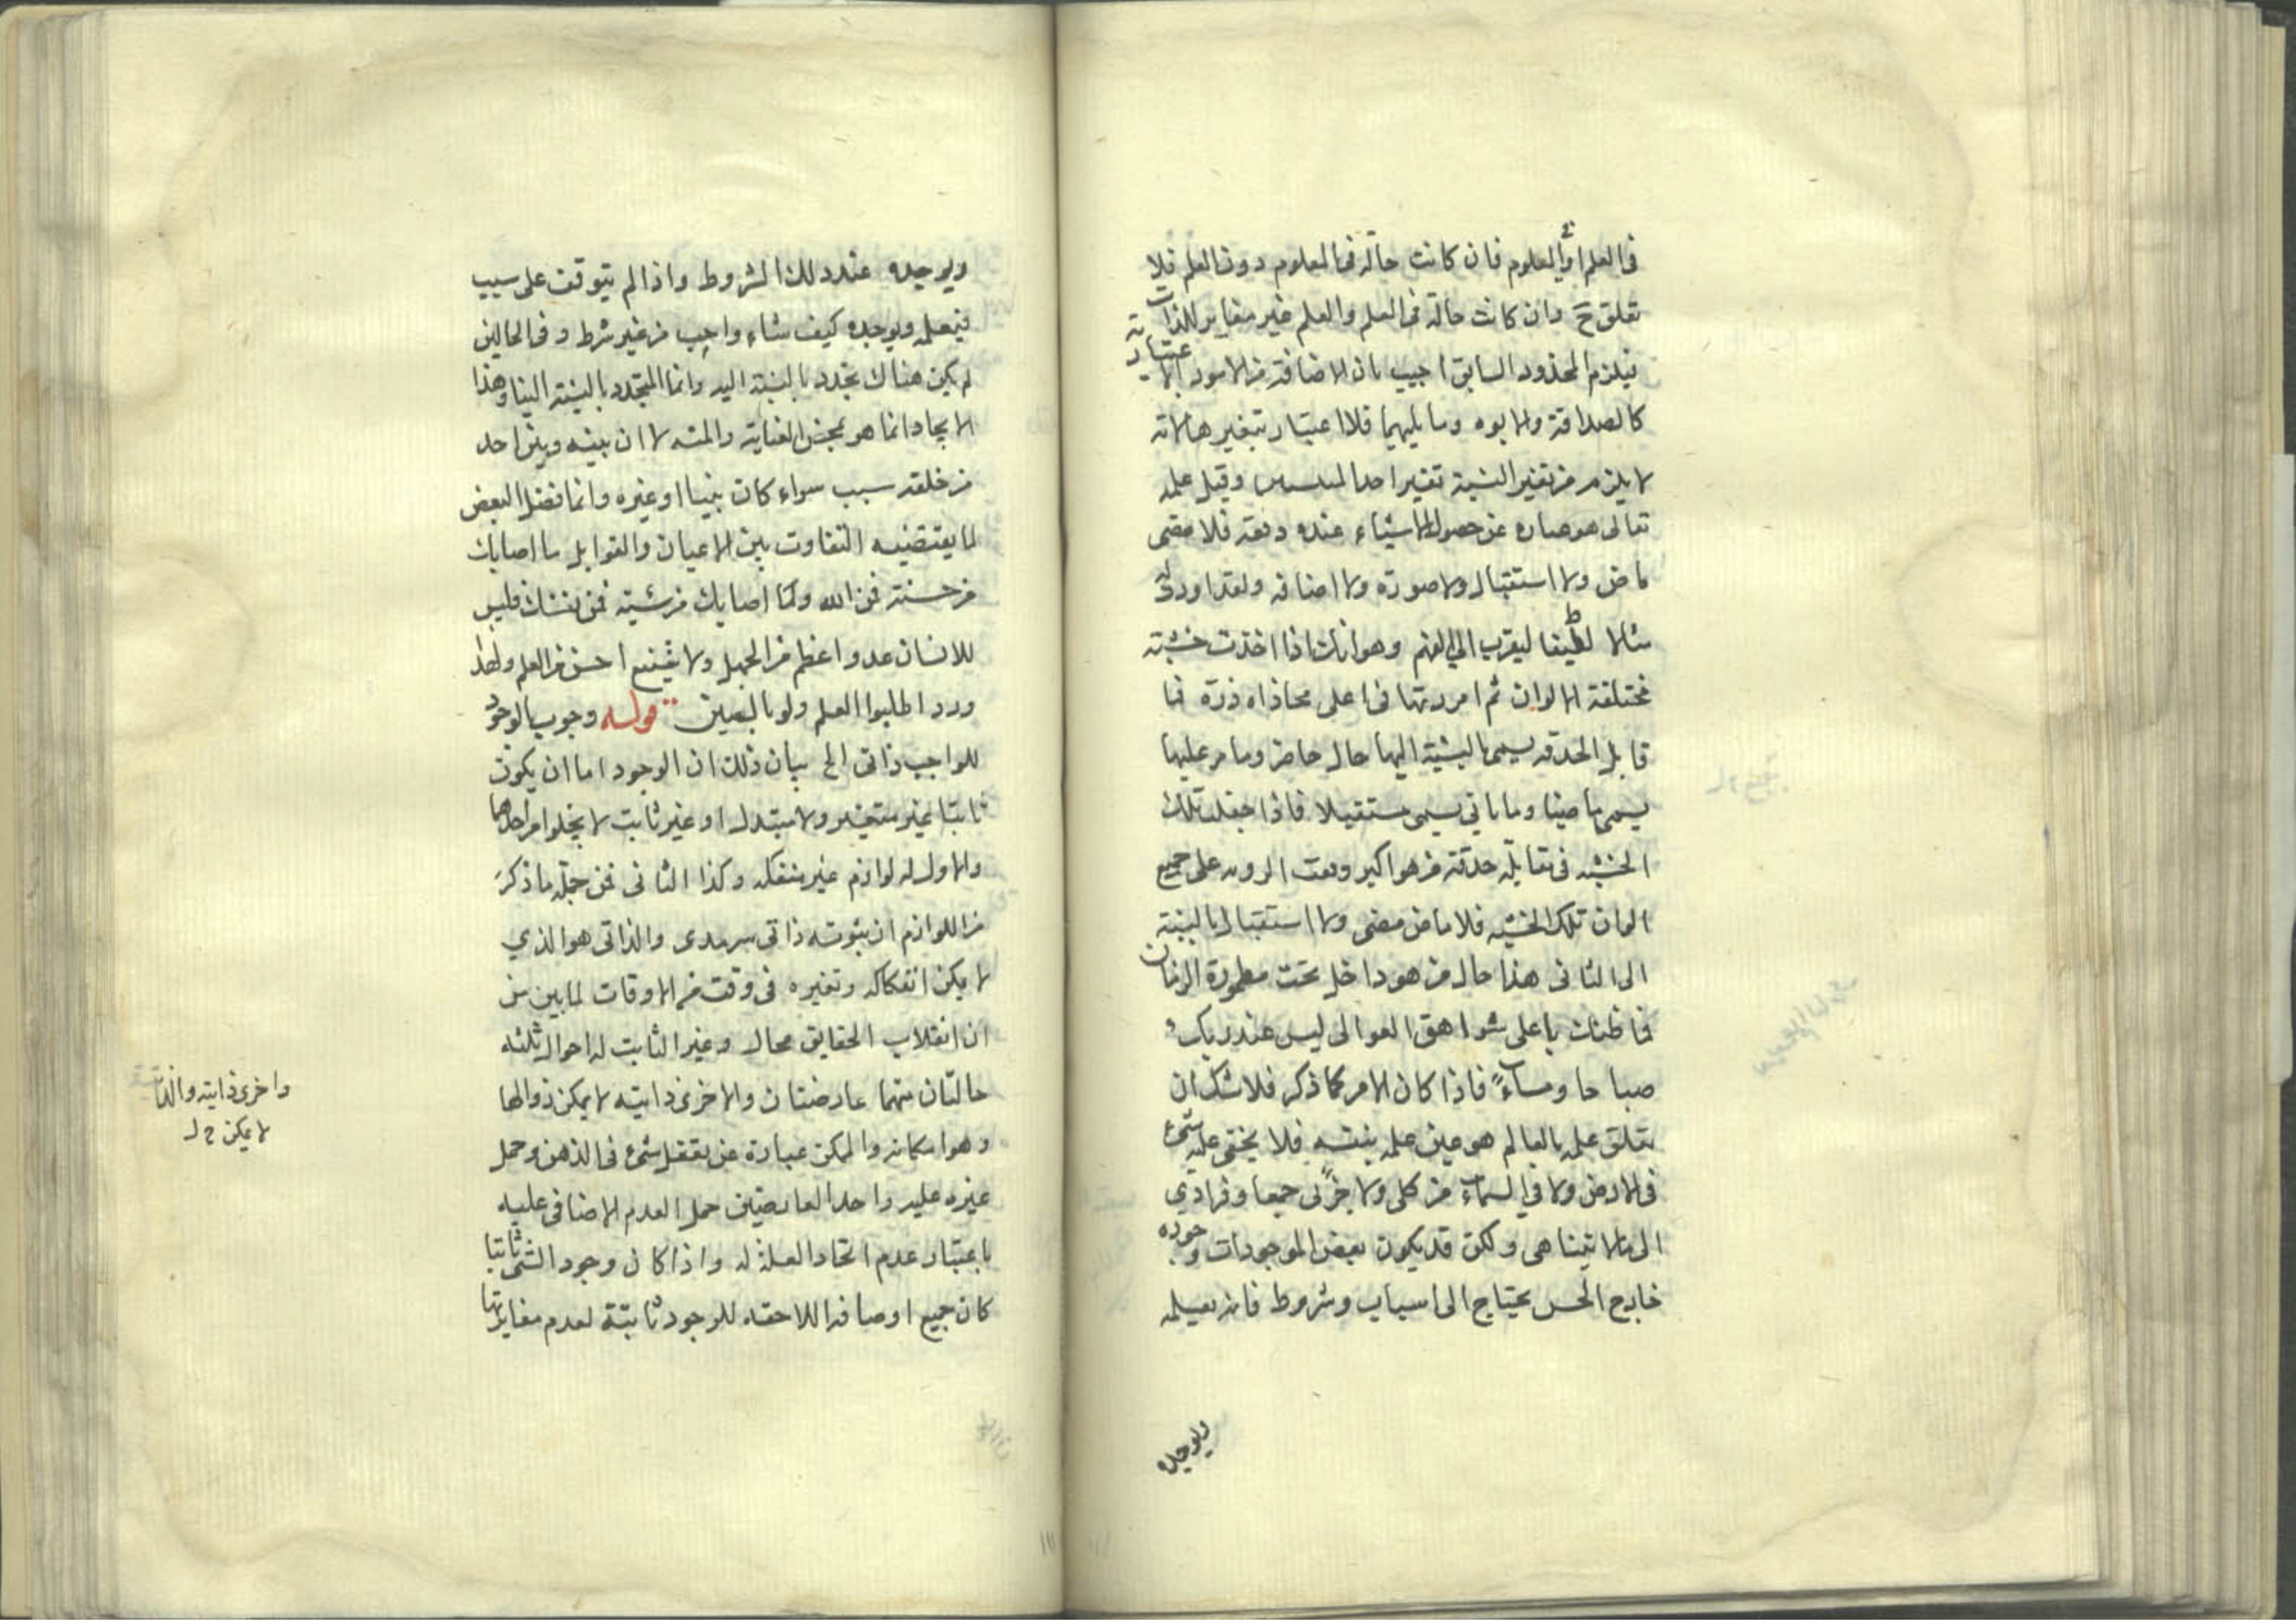 في العلم او المعلوم فان كانت حالة في المعلوم دون العلم فلا
تعلق ح وان كانت حالة في العلم والعلم غير مغاير للذات
فيلزم المحذور السابق اجيب بان الاضافة من الامور الاعتبارية
كالصداقة والابوه وما يليهما فلا اعتبار بتغيرها لانه
لا يلزم من تغير النسبة تغير احد وقيل علمه
تعالى هو عباره عن حصول الاشياء عنده دفعة فلا مضى
ماض ولا استقبال ولا صورة ولا اضافه ولقد اورد له
مثالا لطيفا ليقرب الي الفهم وهو انك اذا اخذت خشبته
مختلفة الالوان ثم امررتها في اعلى محاذاه ذرة فما
قابل الحدقه يسمى بالنسبة اليها حال حاضر وما مر عليها
يسمى ماضيا وما ياتي يسمى مستقبلا فاذا جعلت تلك
الخشبه في مقابلة حدقة من هو اكبر وقعت الرويه على جميع
الوان تلك الخشبه فلا ماض مضى ولا استقبال بالنسبة
الى الثاني هذا حال من هو داخل تحت مطمورة الزمان
فما ظنك باعلى شواهق العوالى ليس عند ربك
صباحا ومساء فاذا كان الامر كما ذكر فلا شك ان
تعلق علمه بالعالم هو عين علمه بنفسه فلا يخفى عليه شيء
في الارض ولا في السماء من كلى ولا جزئى جمعا وفرادي
الى ما لا يتناهى ولكن قد يكون بعض الموجودات وجوده
خارج الحس يحتاج الى اسباب وشروط فانه يعلمه
ويوجده
ويوجده عند ذلك الشروط واذا لم يتوقف على سبب
فيعلمه ويوجده كيف شاء واجب من غير شرط وفي الحالين
لم يكن هناك تجدد بالنسبة اليه وانما المتجدد بالنسبة الينا وهذا
الايجاد انما هو بمحض العناية والمنه لا ان بينه وبين احد
من خلقه سبب سواء كان نبيا او غيره وانما فضل البعض
لما يقتضيه التفاوت بين الاعيان والقوابل ما اصابك
من حسنة فمن الله وما اصابك من سيئة فمن نفسك فليس
للانسان عدو اعظم من الجهل ولا شفيع احسن من العلم ولهذا
ورد اطلبوا العلم ولو بالصين قوله وجوب الوجود
للواجب ذاتى الخ بيان ذلك ان الوجود اما ان يكون
ثابتا غير متغير ولا متبدل او غير ثابت لا يخلوا من احدهما
والاول له لوازم غير منفكه وكذا الثاني فمن جملة ما ذكر
من اللوازم ان ثبوته ذاتى سرمدى والذاتى هو الذي
لا يمكن انفكاكه وتغيره في وقت من الاوقات لما بين من
ان انقلاب الحقايق محال وغير الثابت له احوال ثلثه
حالتان منهما عارضتان والاخرى ذاتيه لا يمكن زوالها
وهو امكانه والممكن عبارة عن تعقل شيء في الذهن وحمل
غيره عليه واحد العارضين حمل العدم الاضافى عليه
باعتبار عدم اتحاد العلة له واذا كان وجود الشي ثابتا
كان جميع اوصافه اللاحقه للوجود ثابتة لعدم مغايرتها
واخرى ذاتيه
لا يمكن
١١١